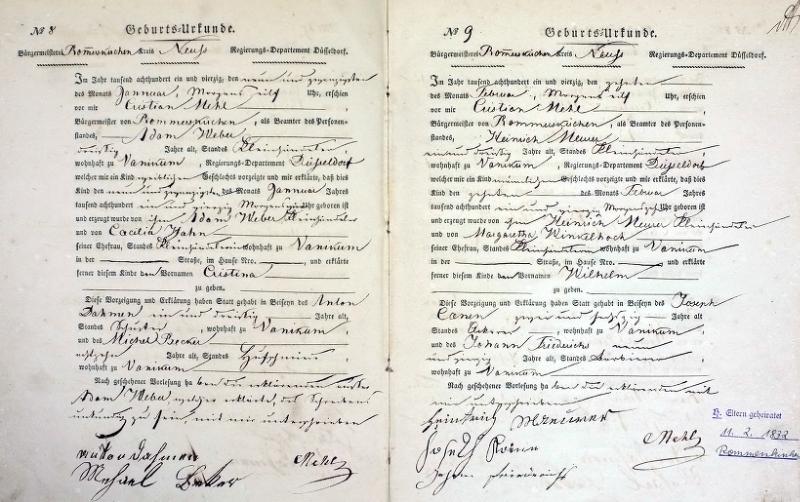 No 8 Geburts-Urkunde.
Bürgermeisterei Rommerskirchen Kreis Neuss Regierungs-Departement Düsseldorf.
Im Jahr tausend achthundert ein und vierzig, den neun und zwanzigsten
des Monats Januar, Morgens eilf Uhr, erschien
vor mir Cristian Mehl
Bürgermeister von Rommerskirchen, als Beamter des Personen-
standes, Adam Weber
dreisig Jahre alt, Standes Kleinhändeler,
wohnhaft zu Vanikum, Regierungs-Departement Düsseldorf
welcher mir ein Kind weiblichen Geschlechts vorzeigte und mir erklärte, daß dies
Kind den neun und zwanzigsten des Monats Januar Jahres
tausend achthundert ein und vierzig Morgens Uhr geboren ist
und erzeugt wurde von ihm Adam Weber Kleinhändeler
und von Caecilia Hahn
seiner Ehefrau, Standes Kleinhändlerin wohnhaft zu Vanikum
in der Straße, im Hause Nro. und erklärte
ferner diesem Kinde den Vornamen Cristina
zu geben.
Diese Vorzeigung und Erklärung haben Statt gehabt in Beiseyn des Anton
Dahmen ein und dreisig Jahre alt,
Standes Schuster, wohnhaft zu Vanikum,
und des Michel Becker
Jahre alt, Standes
wohnhaft zu Vanikum
Nach geschehener Vorlesung haben die erklärenden
Adam Weber, welcher erklärte, des Schreibens
unkundig zu sein, mit mir unterschrieben
Anton Dahmen Mehl
Michael Beker
No 9 Geburts-Urkunde.
Bürgermeisterei Rommerskirchen Kreis Neuss Regierungs-Departement Düsseldorf.
Im Jahr tausend achthundert ein und vierzig, den zehnten
des Monats Februar, Morgens eilf Uhr, erschien
vor mir Cristian Mehl
Bürgermeister von Rommerskirchen, als Beamter des Personen-
standes, Heinrich Meurer
ein und dreisig Jahre alt, Standes Kleinhändeler,
wohnhaft zu Vanikum, Regierungs-Departement Düsseldorf
welcher mir ein Kind männlichen Geschlechts vorzeigte und mir erklärte, daß dies
Kind den zehnten des Monats Februar Jahres
tausend achthundert ein und vierzig Morgens Uhr geboren ist
und erzeugt wurde von ihm Heinrich Meurer Kleinhändeler
und von Margaretha Winkelhoch
seiner Ehefrau, Standes Kleinhändlerin wohnhaft zu Vanikum
in der Straße, im Hause Nro. und erklärte
ferner diesem Kinde den Vornamen Wilhelm
zu geben.
Diese Vorzeigung und Erklärung haben Statt gehabt in Beiseyn des Joseph
Canen und Jahre alt
Standes Ackerer, wohnhaft zu Vanikum,
und des Johann Friederichs neun
und vierzig Jahre alt, Standes
wohnhaft zu Vanikum
Nach geschehener Vorlesung haben die erklärenden mit
mir unterschrieben
Heinrich Meurer
Joseph Mehl
Johann Friederichs
Eltern geheiratet
11. 2. 1832
Rommerskirchen